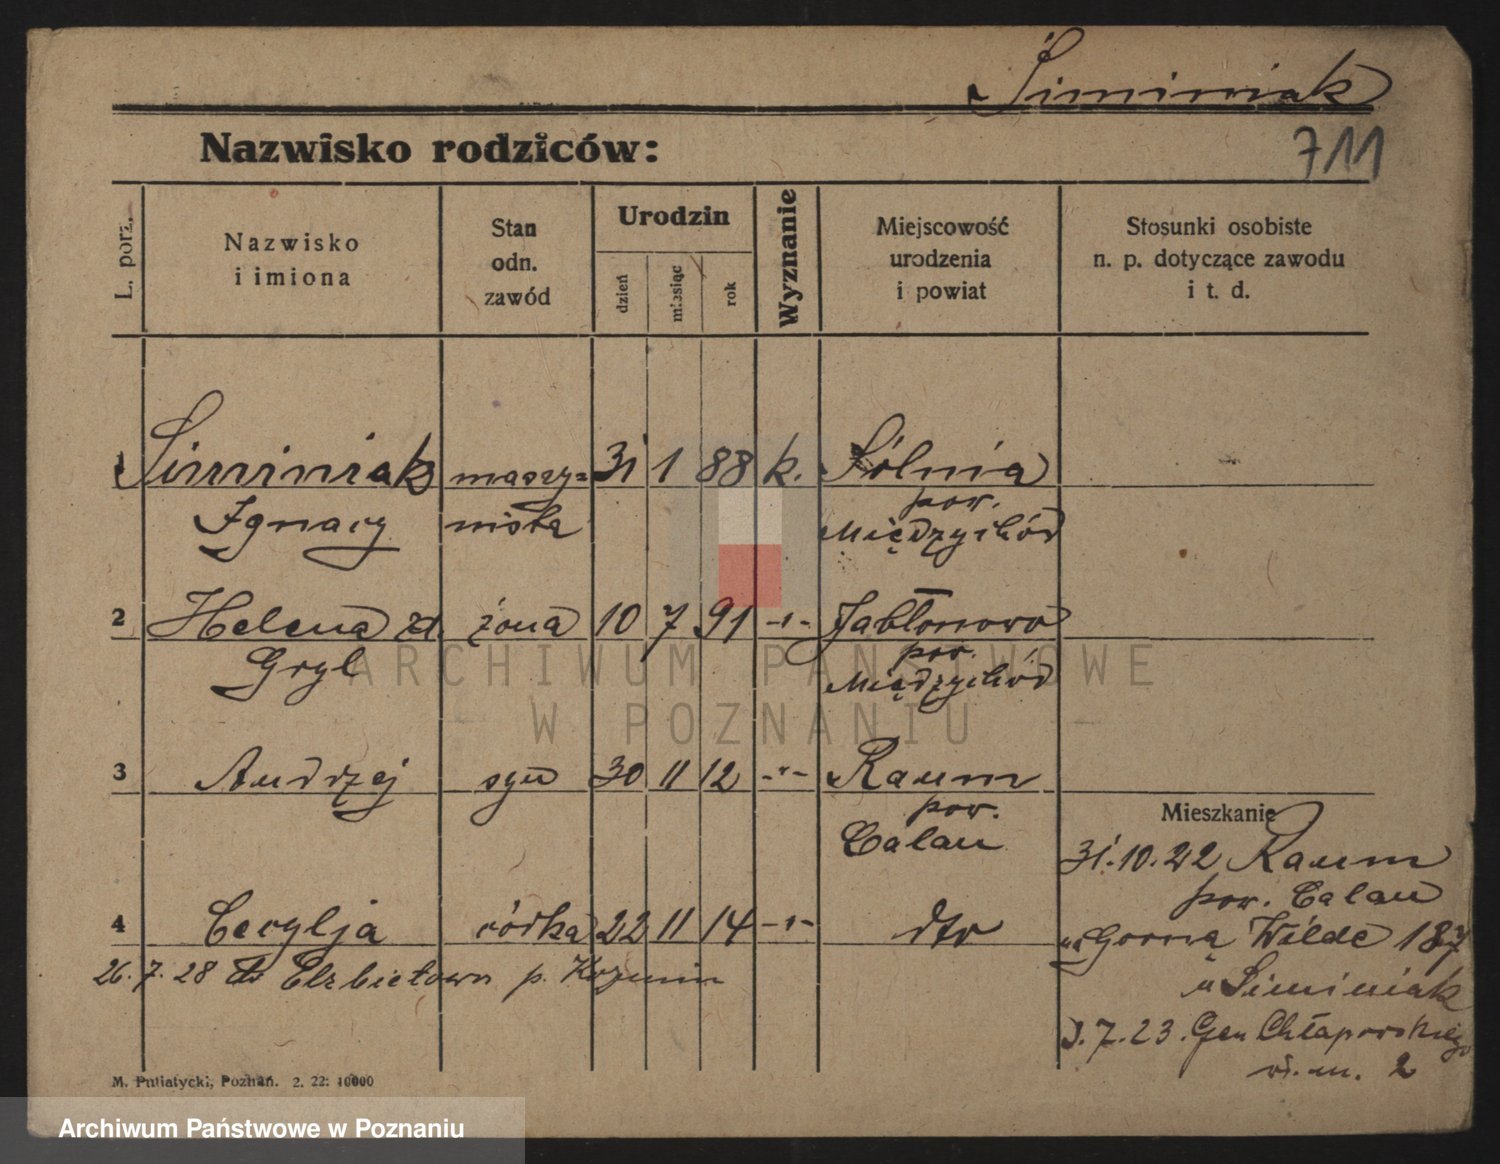 Siminiak
711
Nazwisko rodziców:
L. porz.
Nazwisko
i imiona
Stan
odn.
zawód
Urodzin
dzień
miesiąc
rok
Wyznanie
Miejscowość
urodzenia
i powiat
Stosunki osobiste
n. p. dotyczące zawodu
i t. d.
1 Siminiak maszy= 31 1 88 k.
Ignacy nista pow. Międzychód
2 Helena zd. żona 10 7 91 -"- Jabłonowo
Gryl pow. Międzychód
3 Andrzej syn 30 11 12 -"- Raum
pow.
Calau
Mieszkanie
31.10.22 Raum
pow. Calau
4 Cecylja córka 22 11 14 -"- dto
Górna Wilda 187
u Siminiak
26.7.28 Elzbietowo p. Kozmin
3.7.23. Gen Chłapowskiego
m. 2
M. Putiatycki, Poznań. 2. 22: 10000
ARCHIWUM PAŃSTWOWE
W POZNANIU
Archiwum Państwowe w Poznaniu